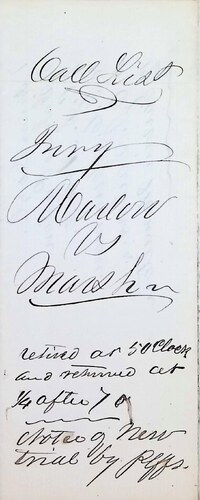 Call List
Jury
Marlow
vs
Marsh
retired at 5 O Clock
and returned at
1/4 after 7 o
Notice of New
trial by Plffs.